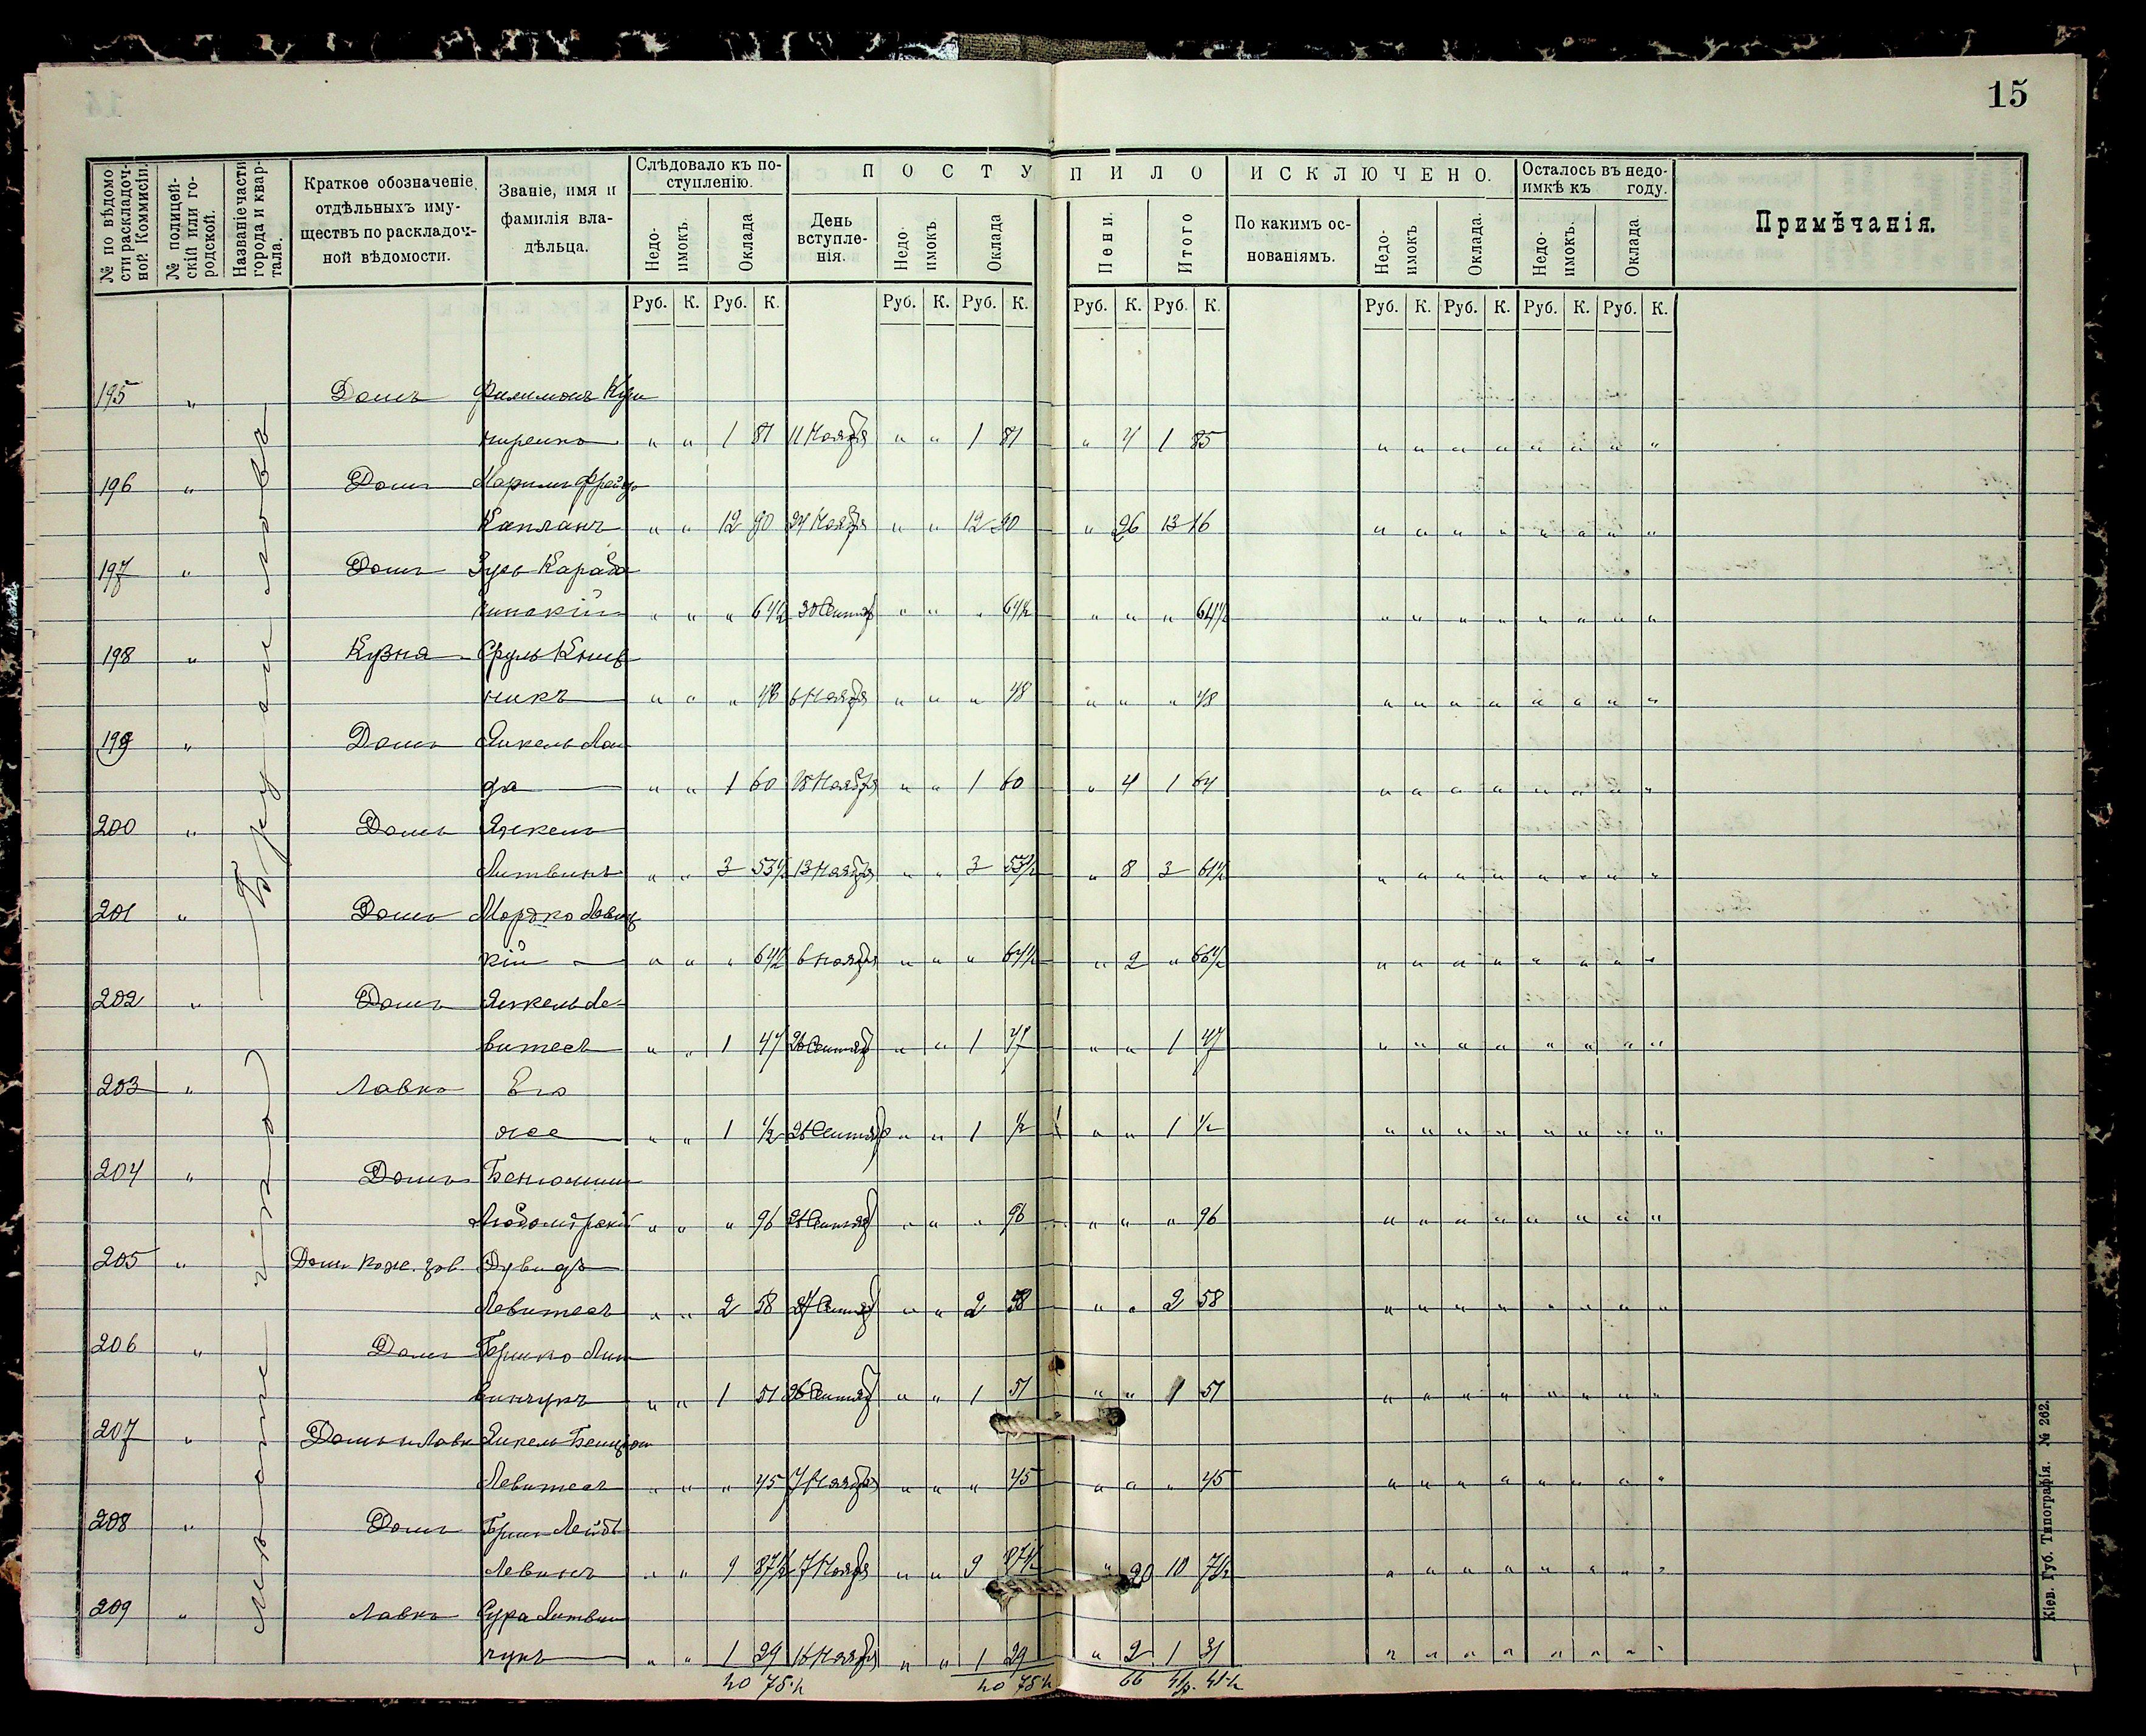 15
№ по вѣдомости раскладочной Коммисіи.
№ полицейскій или городской.
Названіе части города и квартала.
Краткое обозначеніе отдѣльныхъ имуществъ по раскладочной вѣдомости.
Званіе, имя и фамилія владѣльца.
Слѣдовало къ поступленію.
ПОСТУПИЛО
ИСКЛЮЧЕНО.
Осталось въ недоимкѣ къ году.
Примѣчанія.
Недоимокъ. Оклада. День вступленія. Недоимокъ. Оклада Пени. Итого По какимъ основаніямъ. Недоимокъ. Оклада. Недоимокъ. Оклада.
Руб. К. Руб. К. Руб. К. Руб. К. Руб. К. Руб. К. Руб. К. Руб. К. Руб. К. Руб. К.
195 " Домъ Филимонъ
" " 1 81 11 Ноября " " 1 81 " 4 1 85 " " " " " " " "
196 " Домъ
Капланъ " " 12 90 24 Ноября " " 12 90 " 26 13 16 " " " " " " " "
197 " Домъ Зусь Караба
" " " 64½ 30 Сентяб " " " 64½ " " " 64½ " " " " " " " "
198 " Кузня Сруль
никъ " " " 48 6 Ноября " " " 48 " " " 48 " " " " " " " "
199 " Домъ Янкель Лан
да " " 1 60 18 Ноября " " 1 60 " 4 1 64 " " " " " " " "
200 " Домъ Янкель
Литвинъ " " 3 53½ 13 Ноября " " 3 53½ " 8 3 61½ " " " " " " " "
201 " Домъ Мордко Левиц
кій " " " 64½ 6 Ноября " " " 64½ " 2 " 66½ " " " " " " " "
202 " Домъ Янкель Ле-
витесъ " " 1 47 26 Сентяб " " 1 47 " " 1 47 " " " " " " " "
203 " Лавка Его
же " " 1 ½ 26 Сентяб " " 1 ½ " " 1 ½ " " " " " " " "
204 " Домъ Беньоминъ
Любомирскій " " " 96 26 Сентяб " " " 96 " " " 96 " " " " " " " "
205 " Домъ кож. зав. Дувидъ
Левитесъ " " 2 58 Сентяб " " 2 58 " " 2 58 " " " " " " " "
206 " Домъ Гершко Лит
винчукъ " " 1 51 26 Сентяб " " 1 51 " " 1 51 " " " " " " " "
207 " Домъ и Лавк Янкель Бенціон
Левитесъ " " " 45 7 Ноября " " " 45 " " " 45 " " " " " " " "
208 " Домъ Гершъ Лейб
Левинъ " " 9 87½ 7 Ноября " " 9 87½ " 20 10 7½ " " " " " " " "
209 " Лавка Сура Литвин
чукъ " " 1 29 16 Ноября " " 1 29 " 2 1 31 " " " " " " " "
40 75½ 40 75½ 66 41 41½
Мѣстечко
Кіев. Губ. Типографія. № 262.